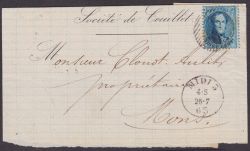 Société de Couillet
Monsieur Clouet
propriétaire
Mons.
MIDI 3
4-S
26-7
65